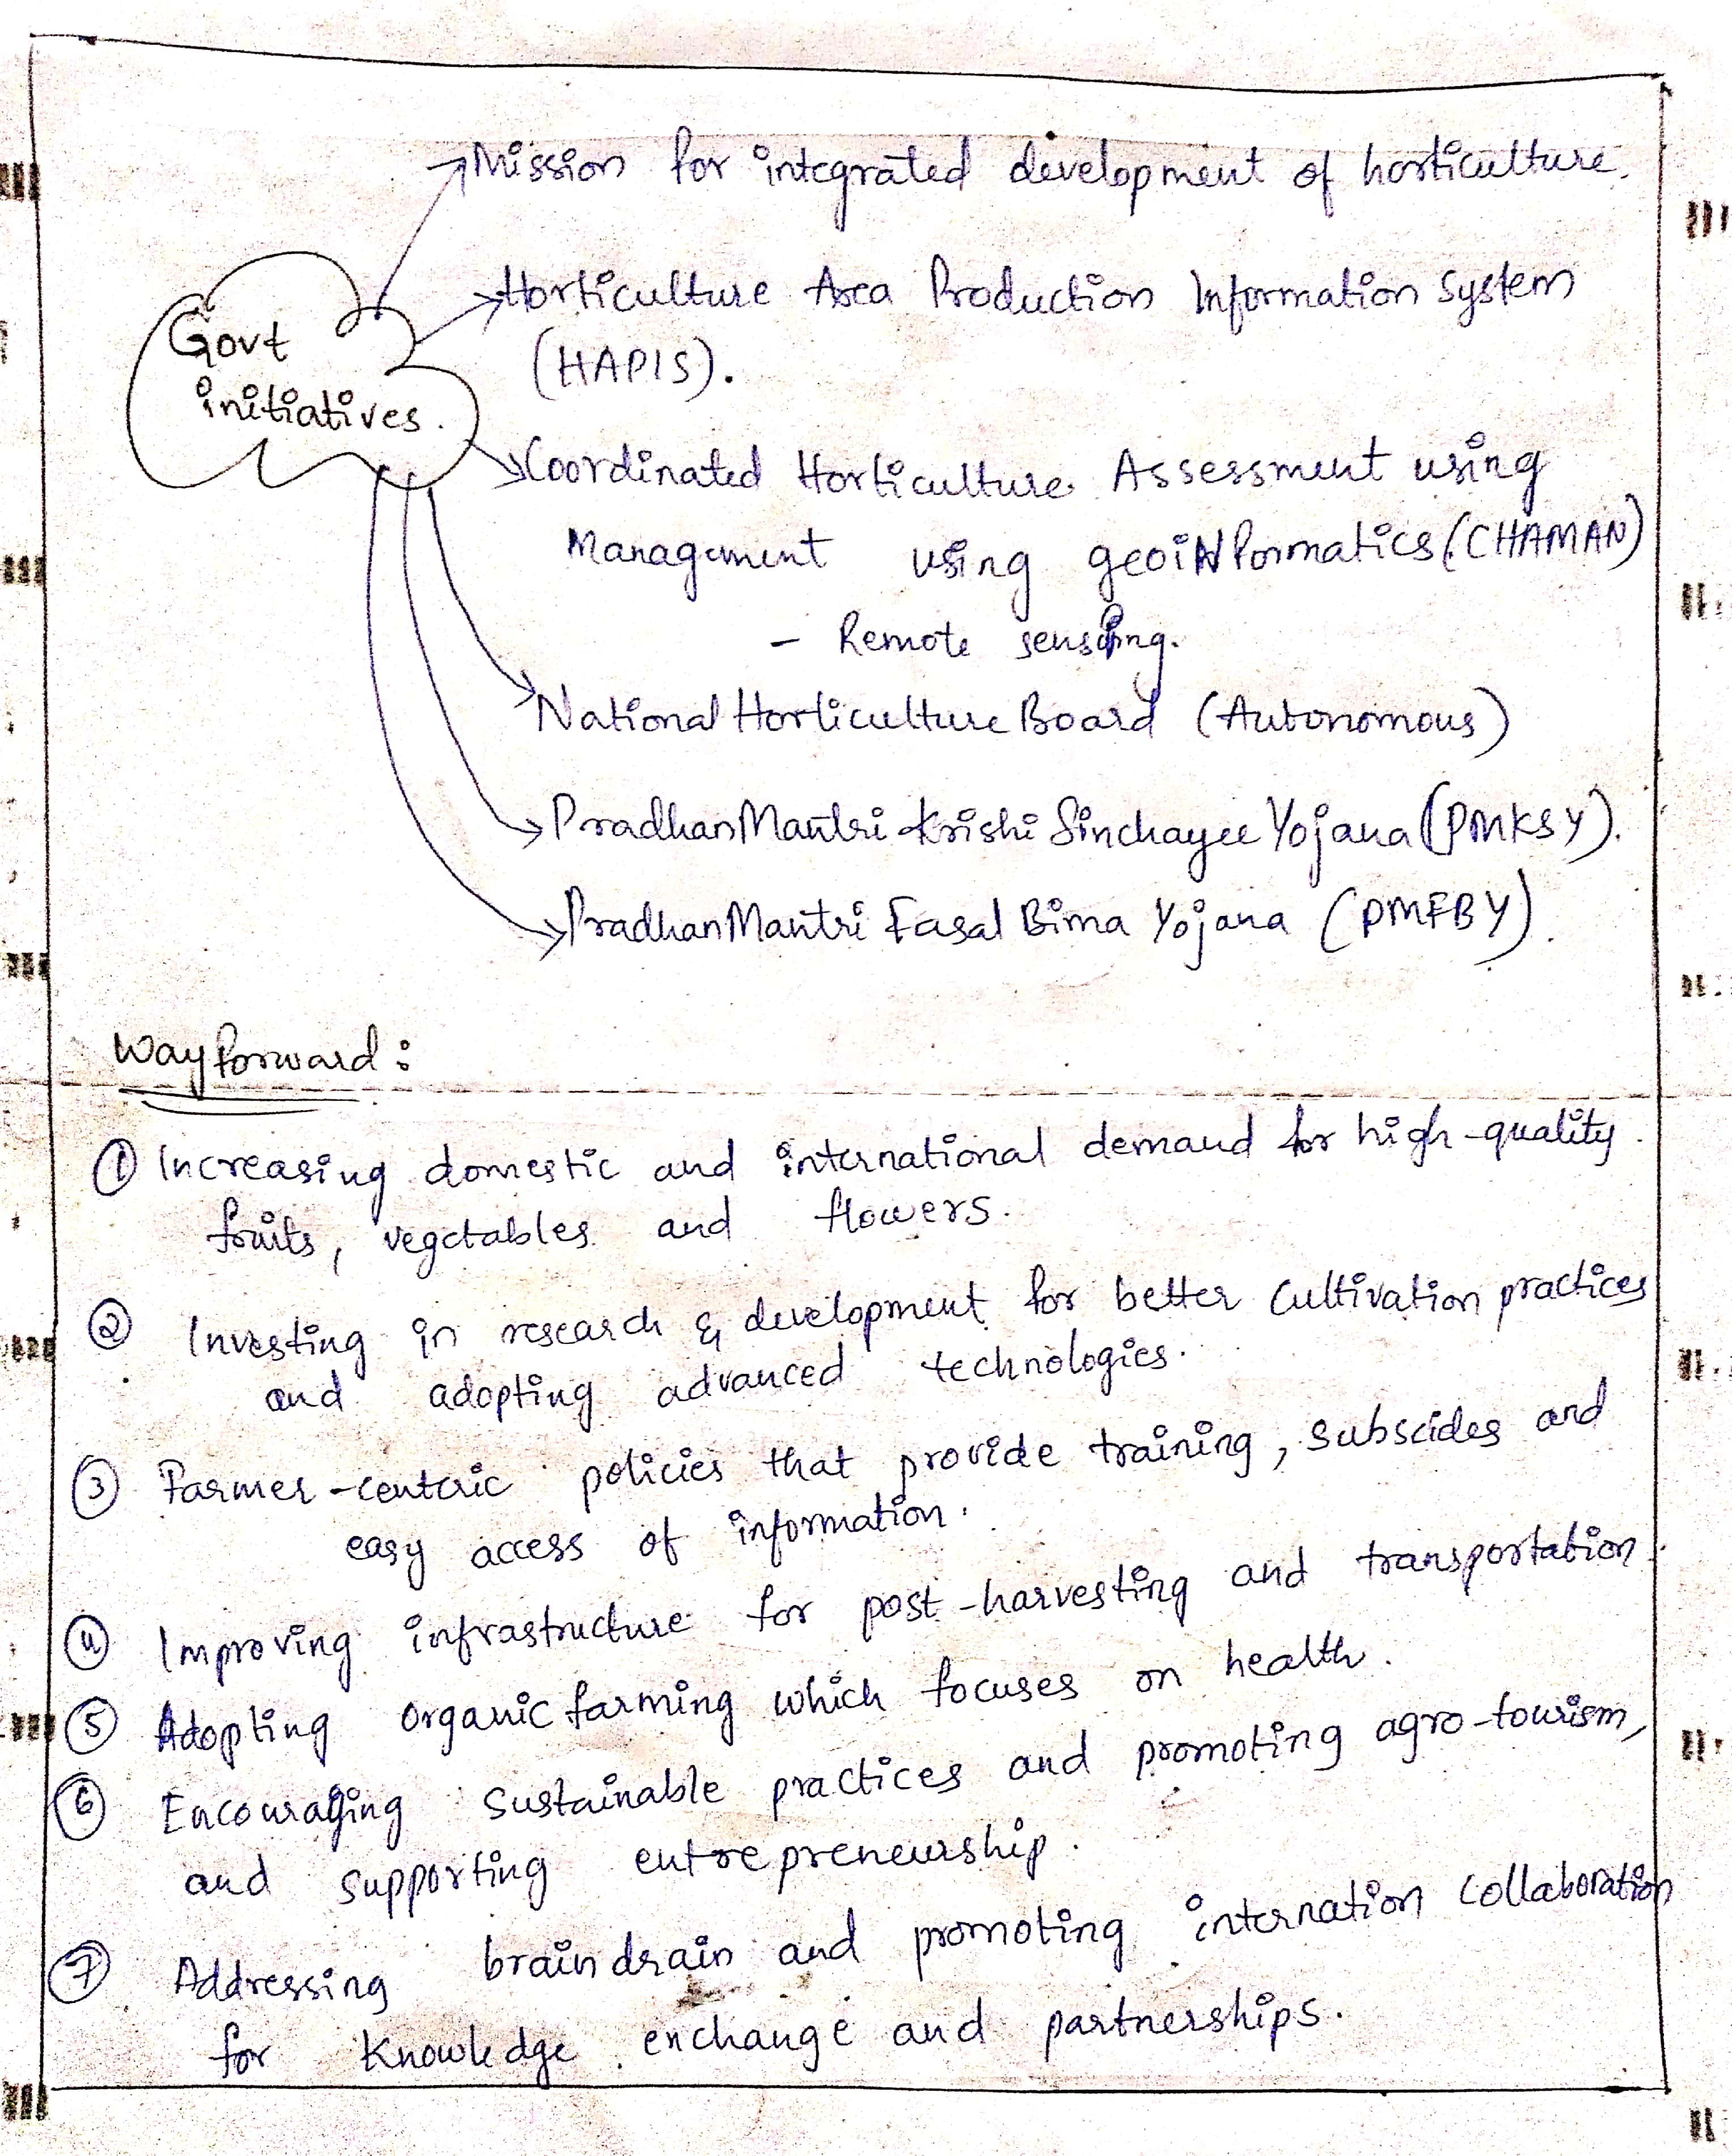 Mission for integrated development of horticulture.
Horticulture Area Production Information System
(HAPIS).
Govt
initiatives.
Coordinated Horticulture Assessment using
Management using geoinformatics (CHAMAN)
- Remote sensing.
National Horticulture Board (Autonomous)
Pradhan Mantri Krishi Sinchayee Yojana (PMKSY).
Pradhan Mantri Fasal Bima Yojana (PMFBY).
Way forward :
① Increasing domestic and international demand for high-quality
fruits, vegetables and flowers.
② Investing in research & development for better cultivation practices
and adopting advanced technologies.
③ Farmer-centric policies that provide training, subscides and
easy access of information.
④ Improving infrastructure for post-harvesting and transportation.
⑤ Adopting organic farming which focuses on health.
⑥ Encouraging sustainable practices and promoting agro-tourism,
and supporting entrepreneurship.
⑦ Addressing brain drain and promoting internation collaboration
for knowledge exchange and partnerships.